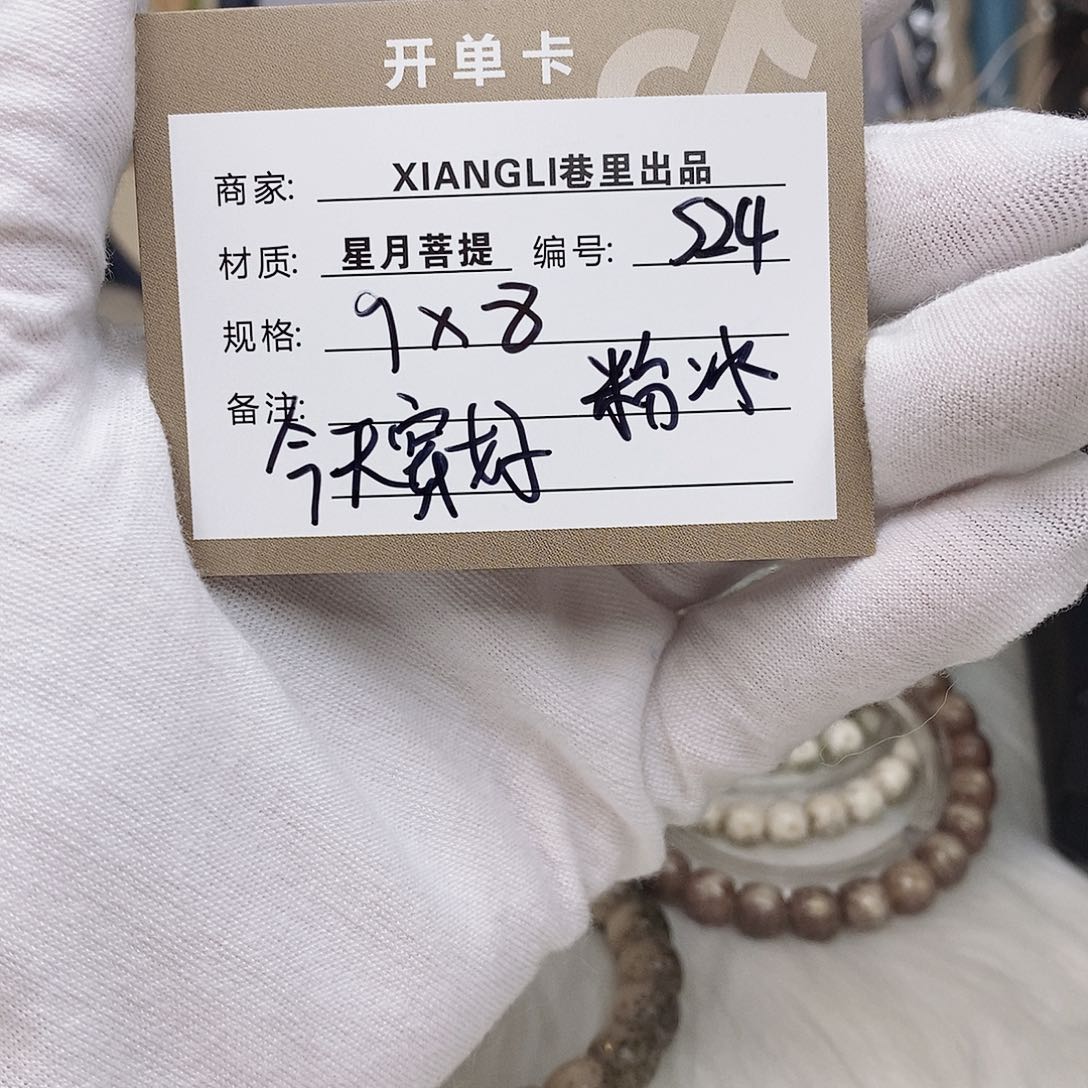 开单卡
商家: XIANGLI巷里出品
材质: 星月菩提 编号: S24
规格: 9×8
粉冰
备注:
今天赏好